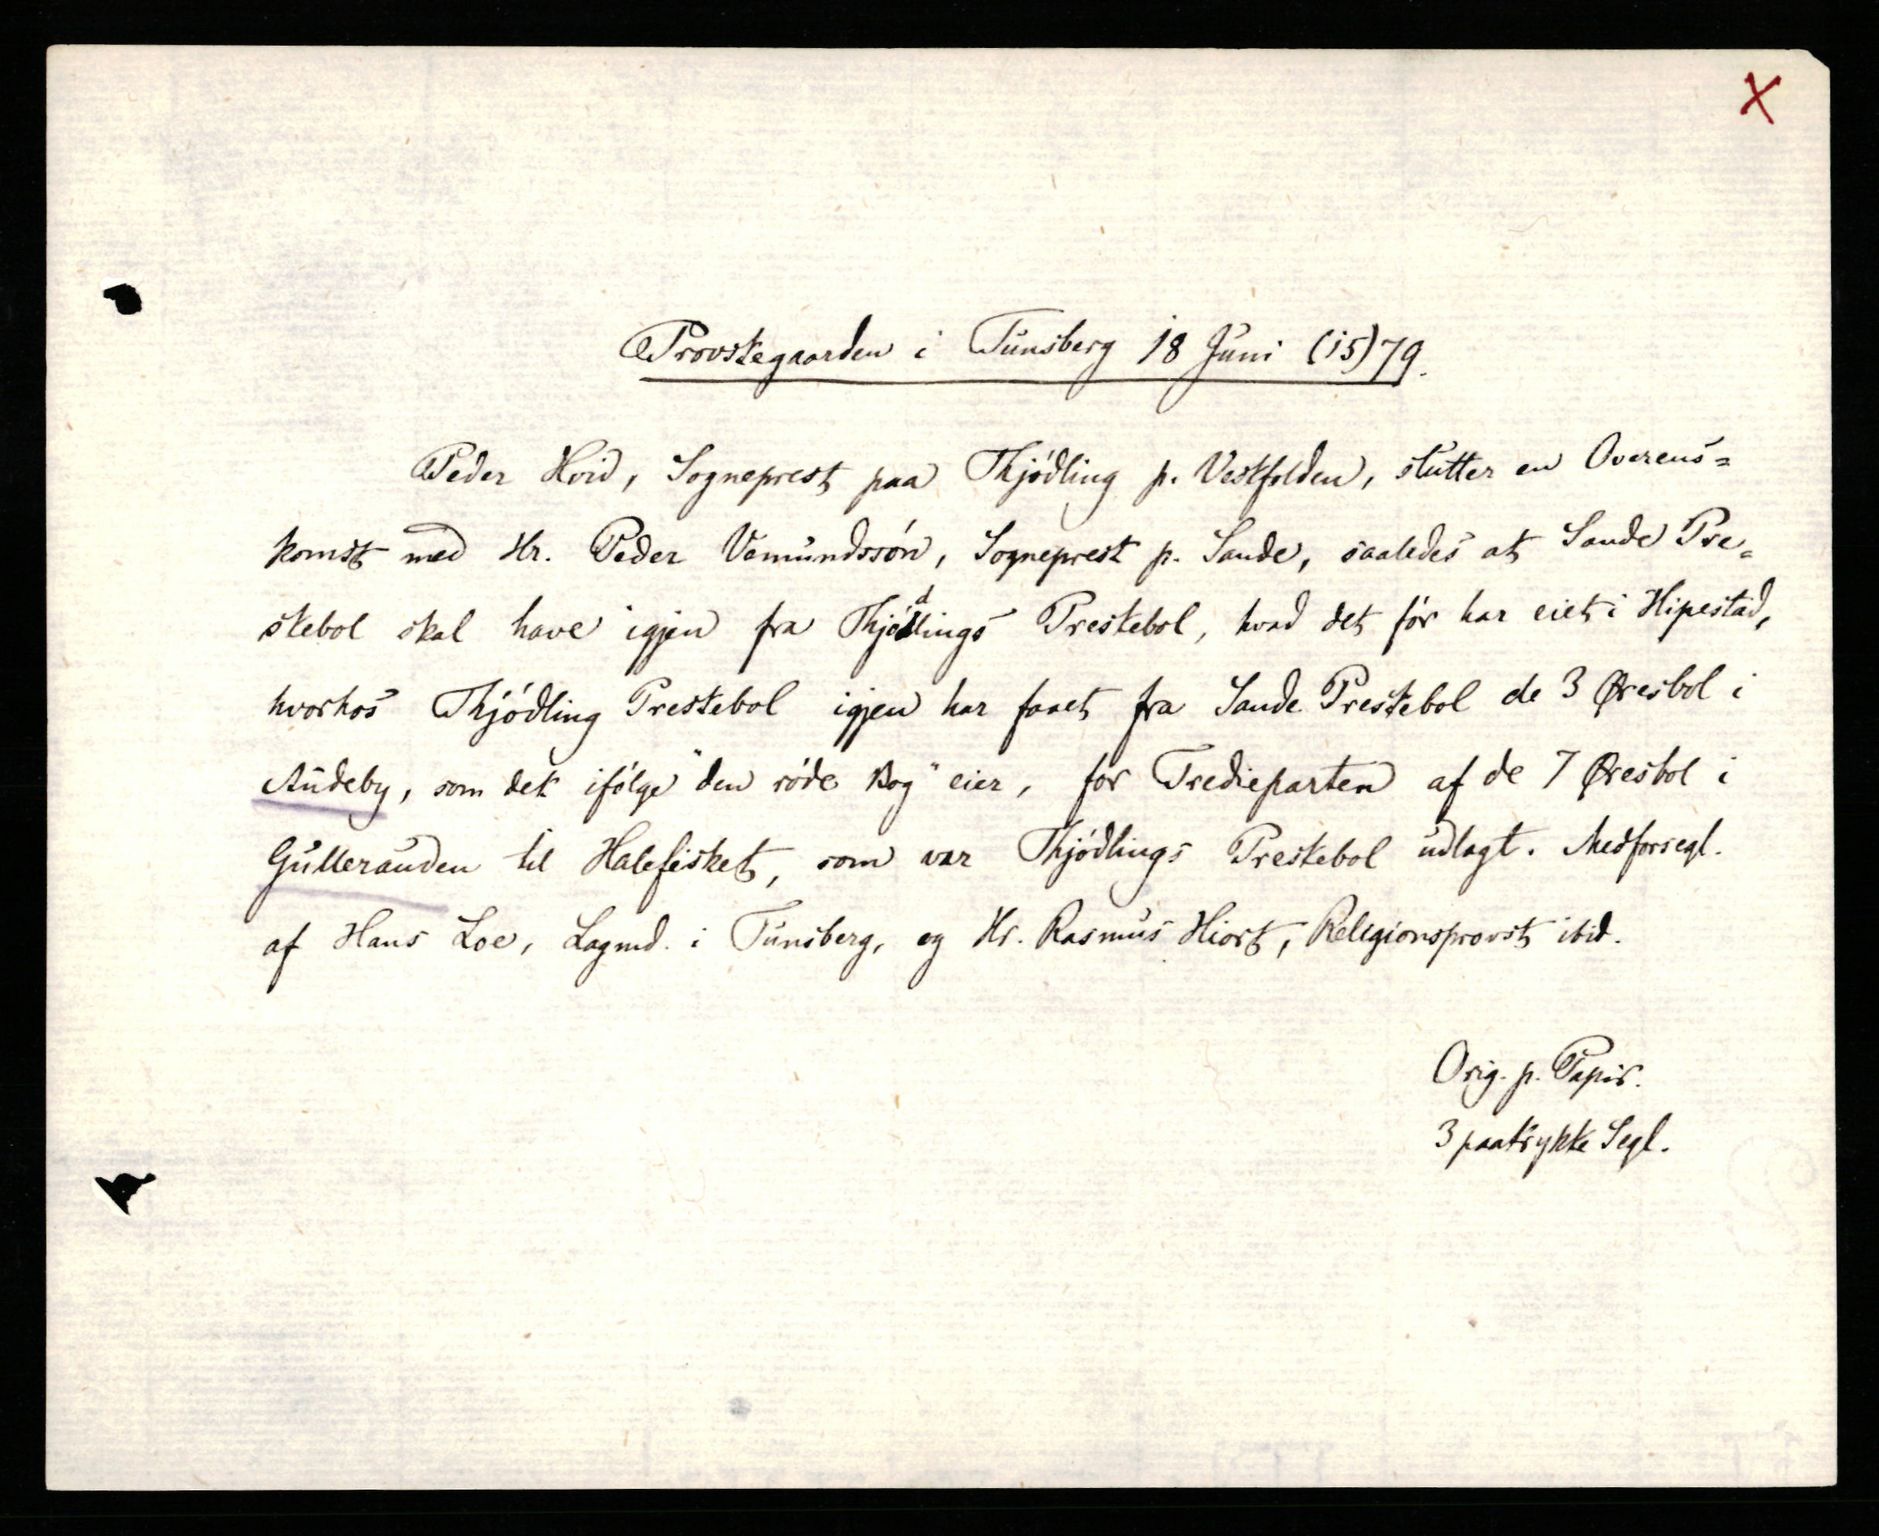 X
Provstegaarden i Tunsberg 18 Juni (15)79.
Peder Hvid, Sogneprest paa Thjödling p. Vestfolden, slutter en Overens=
komst med Hr. Peder Vemundssön, Sogneprest p. Sande, saaledes at Sande Pre=
stebol skal have igjen fra Thjödlings Prestebol, hvad det för har eiet i Hipestad,
hvorhos Thjödling Prestebol igjen har faaet fra Sande Prestebol de 3 Øresbol i
Audeby, som det ifölge "den röde Bog" eier, for Tredieparten af de 7 Øresbol i
Gulleraunden til Halefisket, som var Thjödlings Prestebol udlagt. Medforsegl.
af Hans Loe, Lagmd. i Tunsberg, og Hr. Rasmus Hiort, Religionsprovst ibid.
Orig. p. Papir.
3 paatrykte Segl.